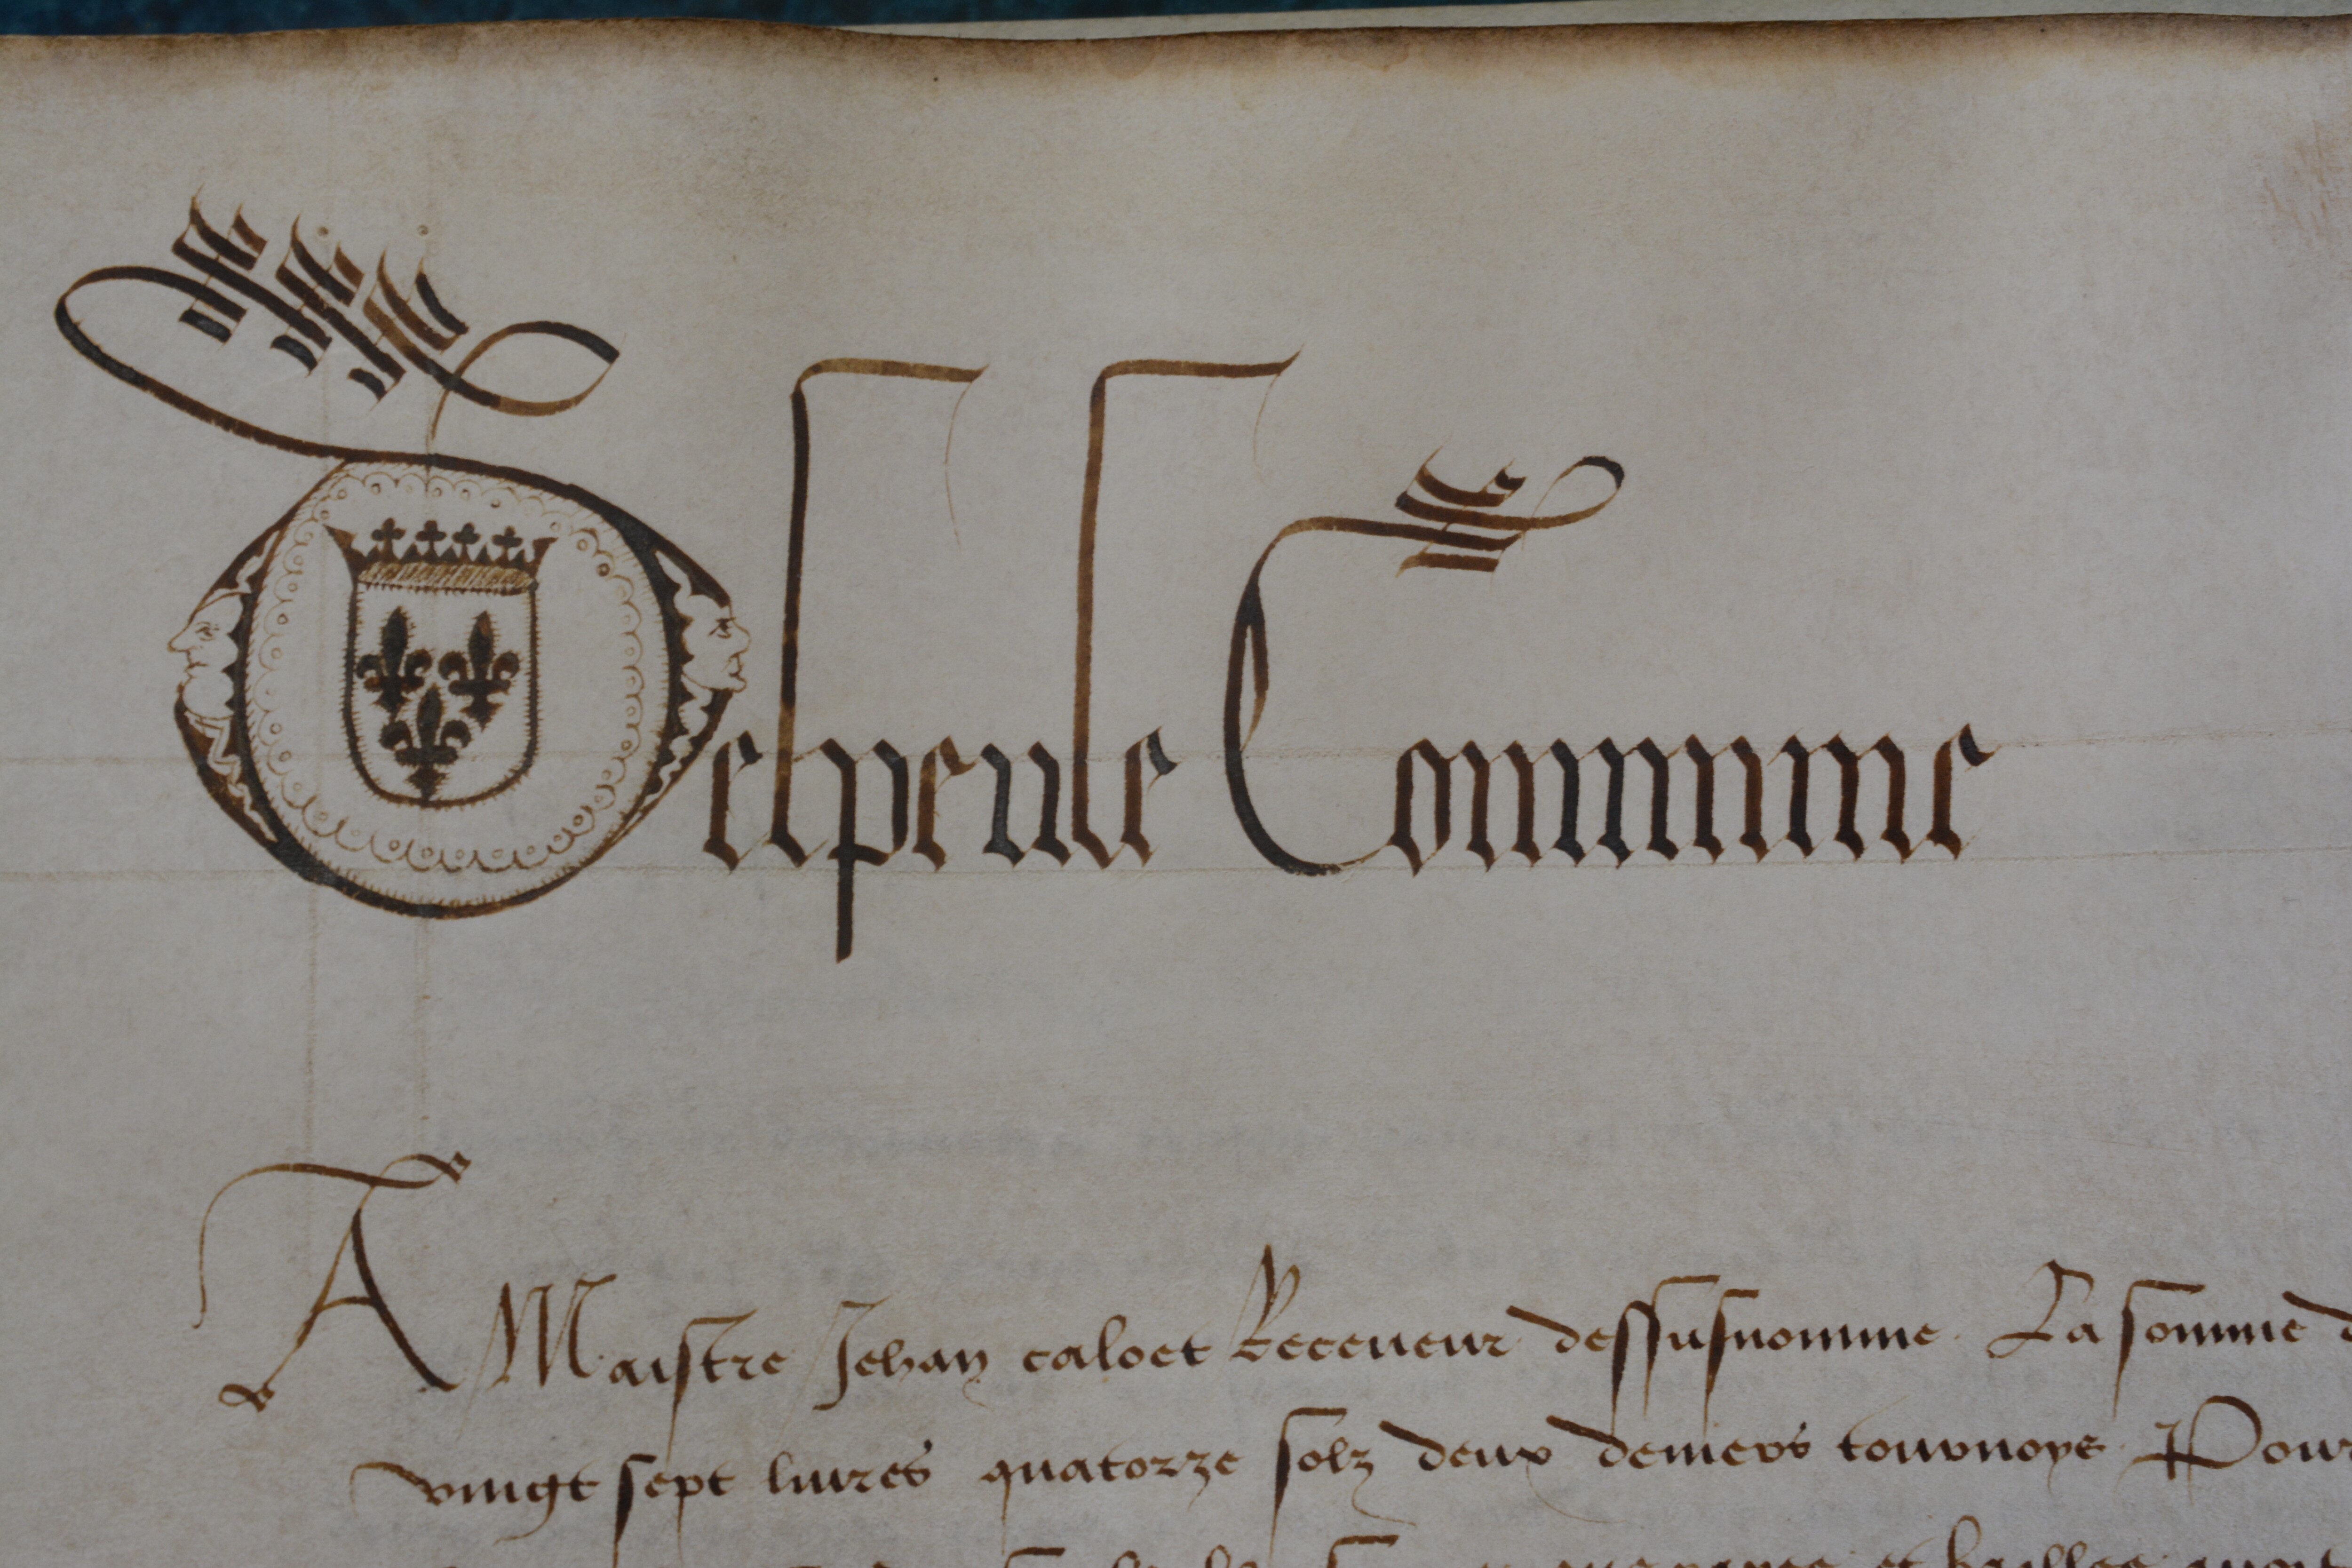 Despense Commune
A Maistre Jehan caloet Receueur dessusnomme. La somme
vingt sept liures quatorze solz deux deniers tournoys. Pour